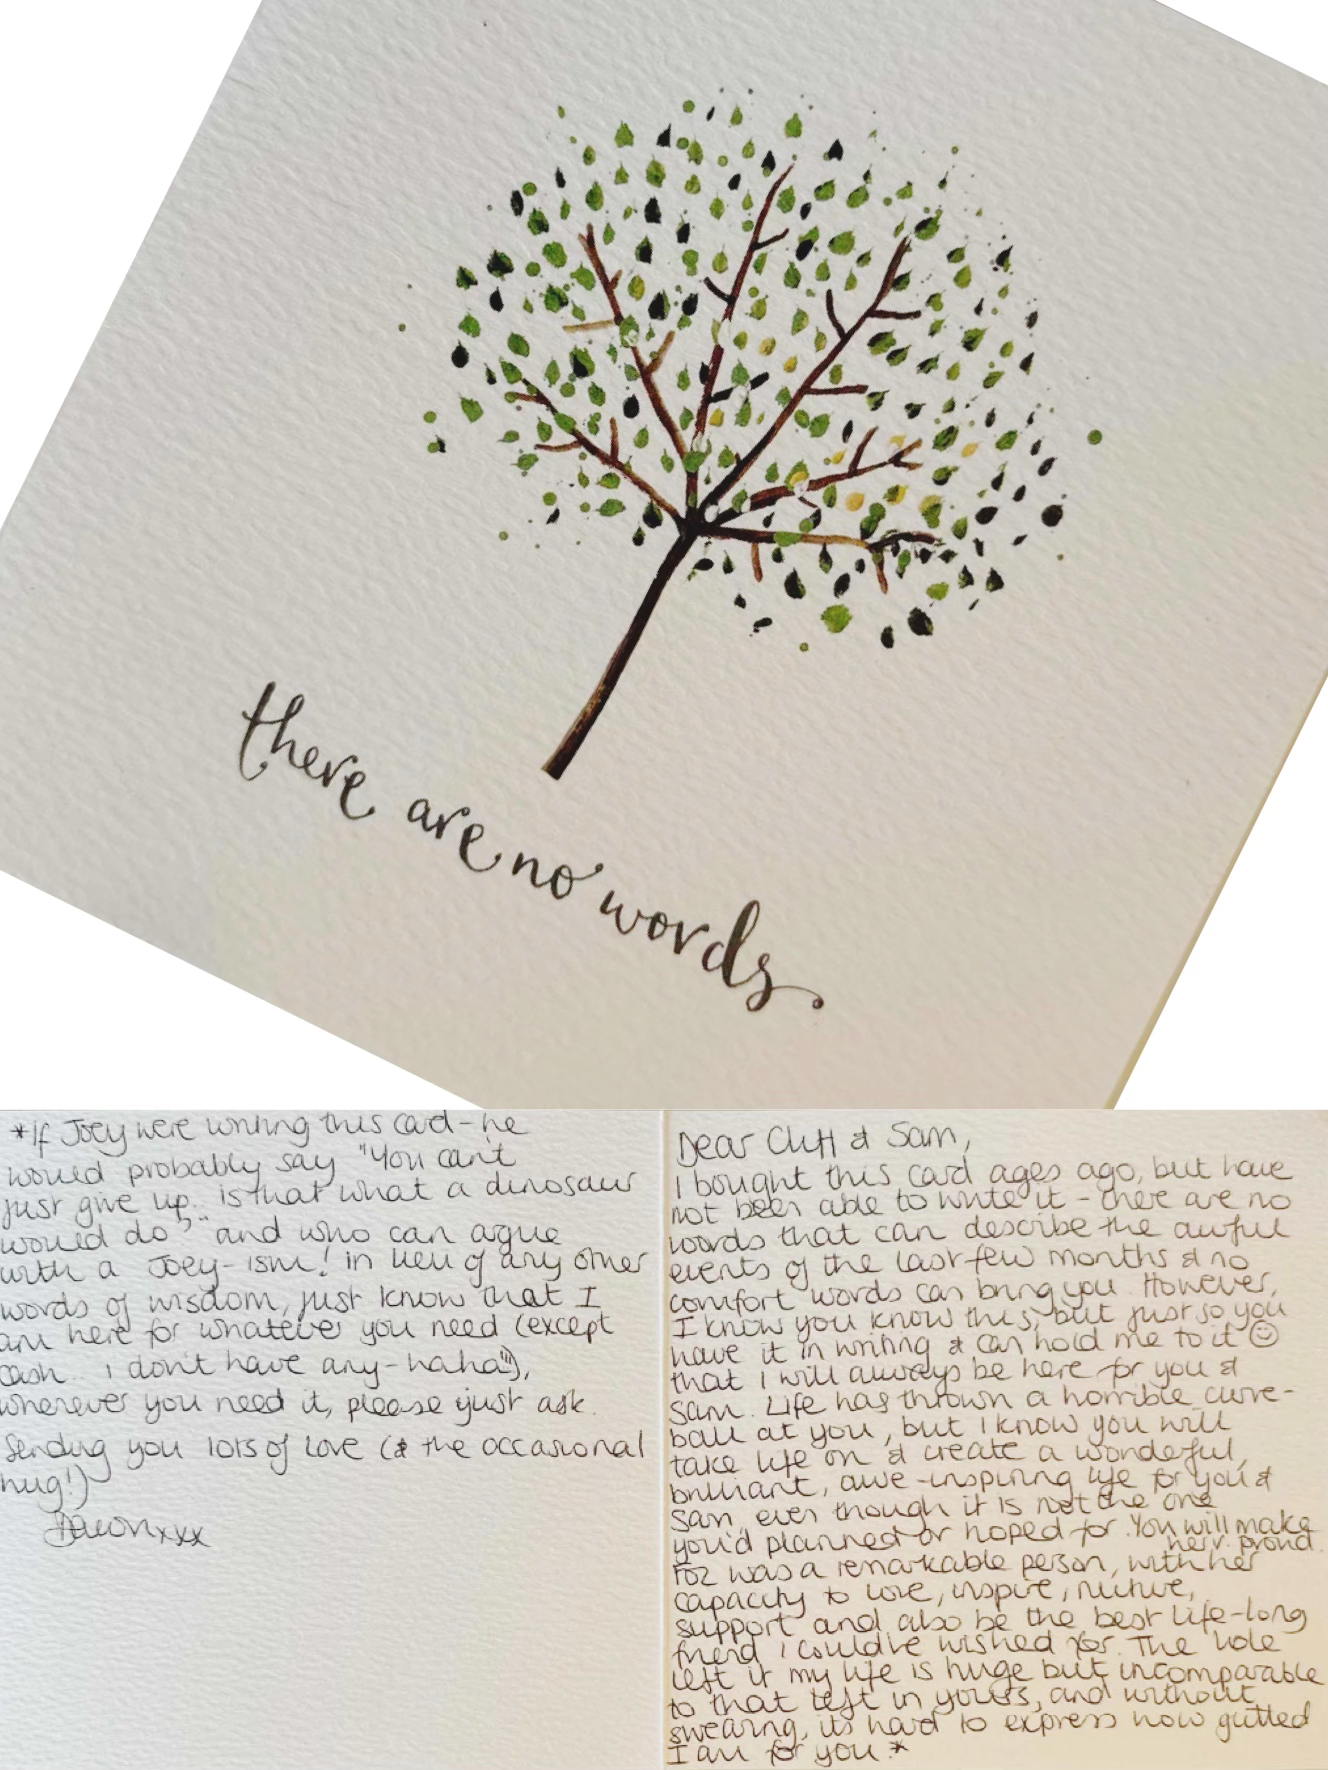 there are no words
*If Joey were writing this card - he
would probably say "You can't
just give up.. is that what a dinosaur
would do?" and who can argue
with a Joey-ism! in lieu of any other
words of wisdom, just know that I
am here for whatever you need (except
cash.. i don't have any - haha!!),
wherever you need it, please just ask.
Sending you lots of love (& the occasional
hug!)
xxx
Dear Cliff & Sam,
I bought this card ages ago, but have
not been able to write it - there are no
words that can describe the awful
events of the last few months & no
comfort words can bring you. However,
I know you know this, but just so you
have it in writing & can hold me to it ☺
that I will always be here for you &
Sam. Life has thrown a horrible curve-
ball at you, but I know you will
take life on & create a wonderful,
brilliant, awe-inspiring life for you &
Sam, even though it is not the one
you'd planned or hoped for. You will make
her v. proud.
Foz was a remarkable person, with her
capacity to love, inspire, nurture,
support and also be the best life-long
friend i could've wished for. The hole
left in my life is huge but incomparable
to that left in yours, and without
swearing, its hard to express how gutted
I am for you.*